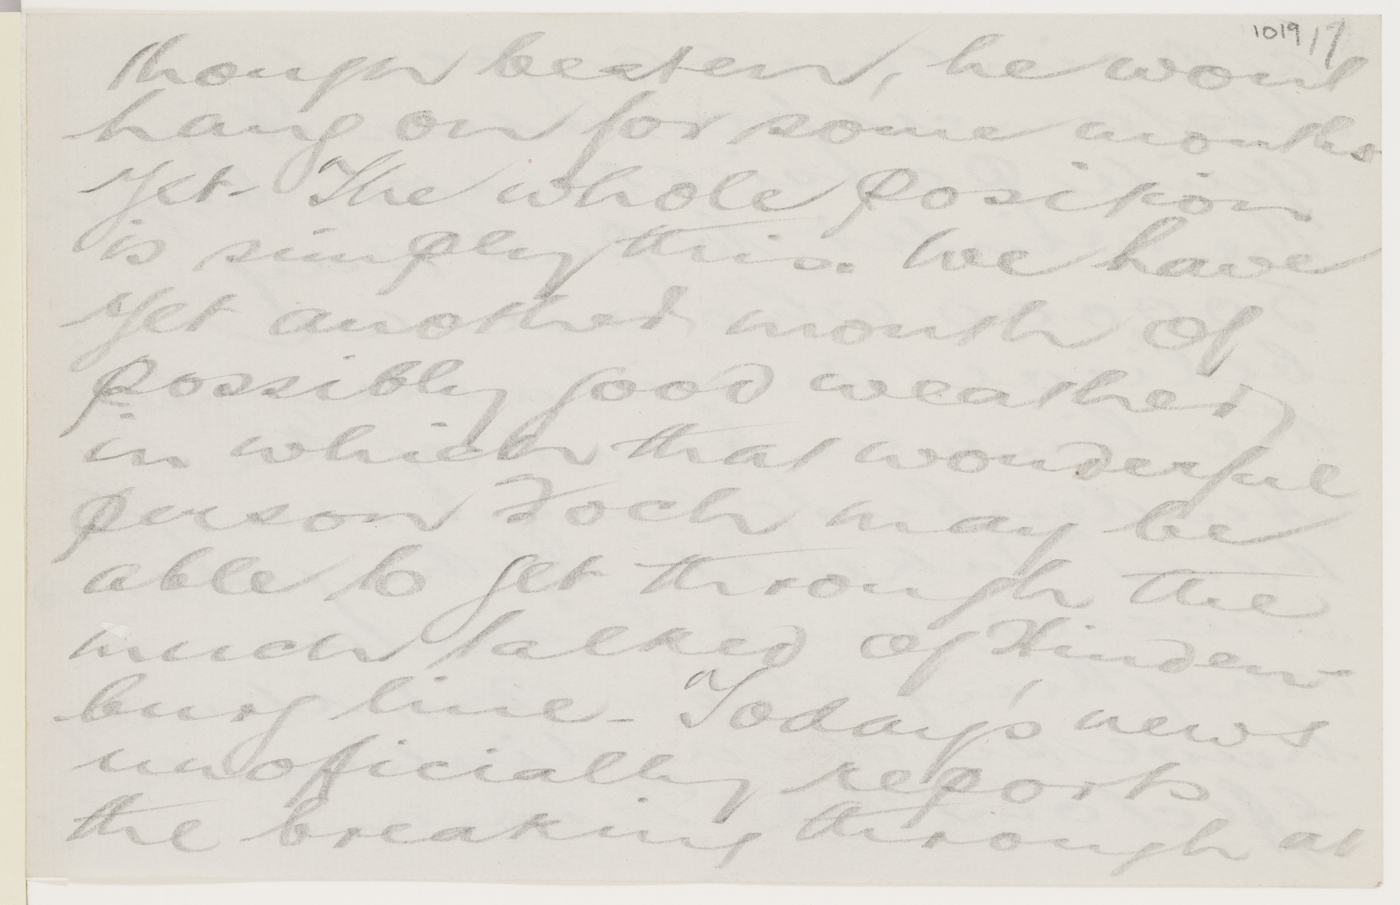 1019/17
though beaten, he wont
hang on for some months
yet - The whole position
is simply this. We have
yet another month of
possibly good weather,
in which that wonderful
person Foch may be
able to get through the
much talked of Hinden-
burg line - Today's news
unofficially reports
the breaking through at